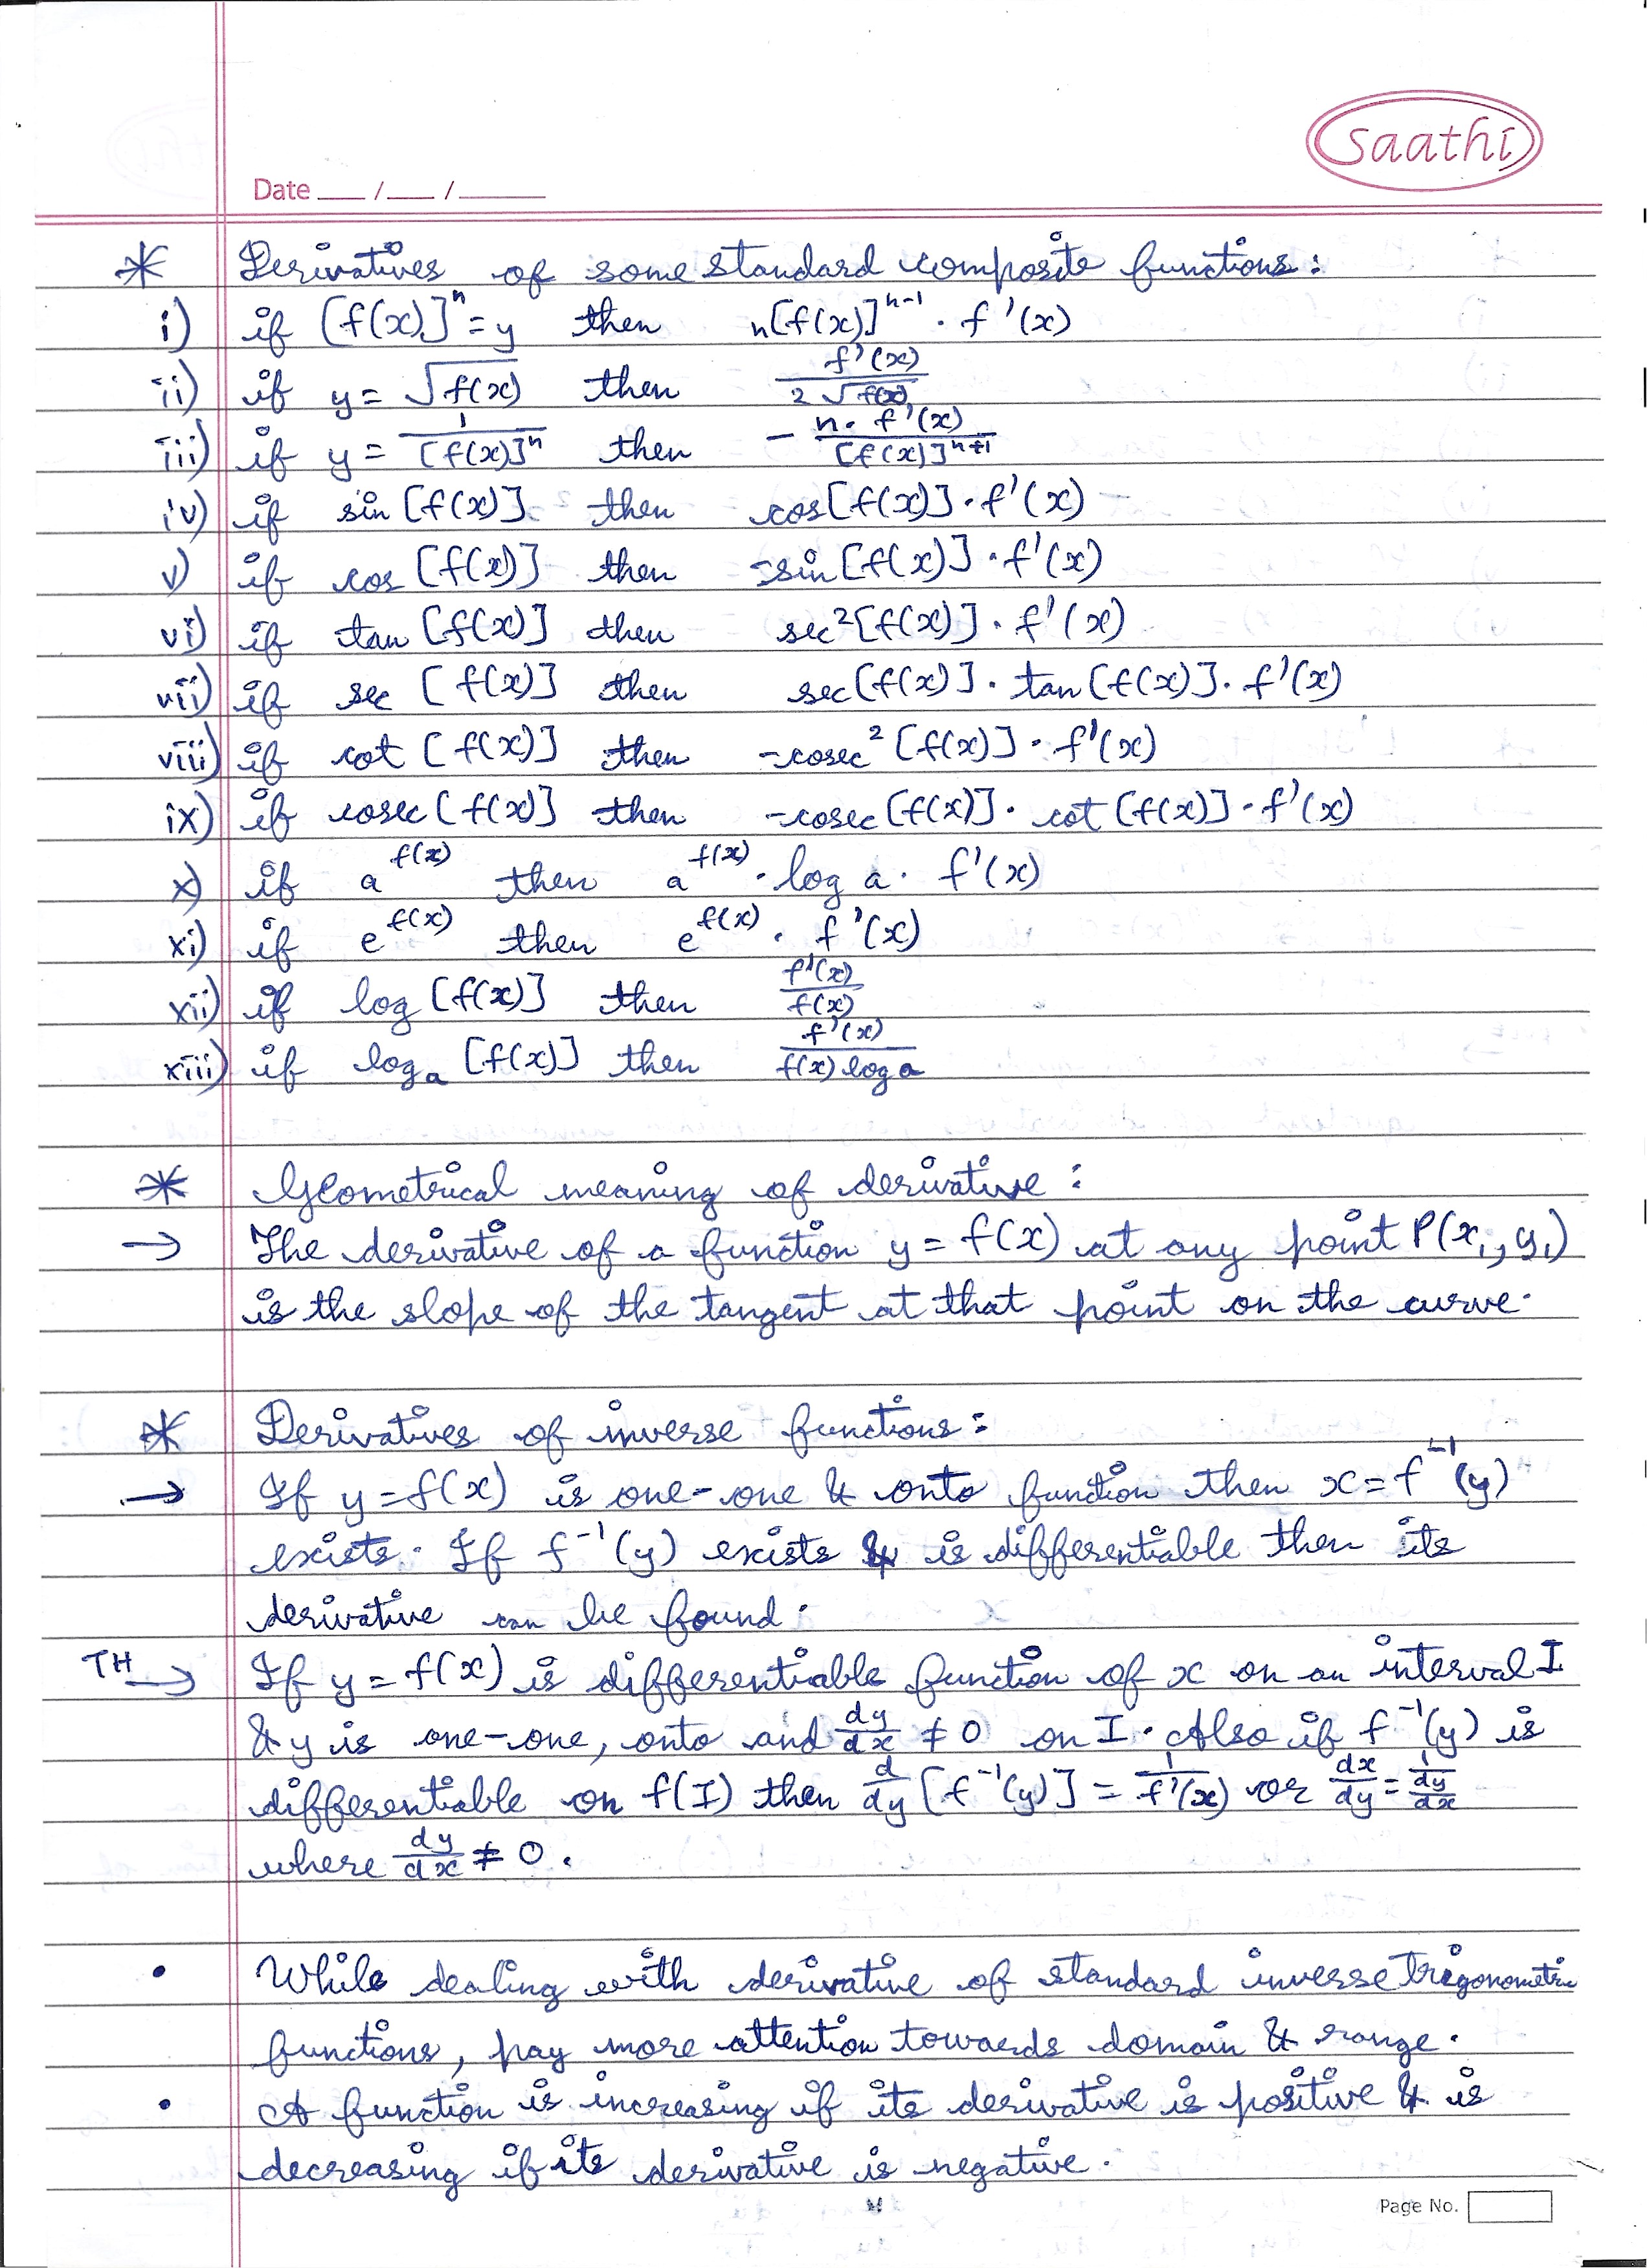 saathi
Date ___ /___ /_____
* Derivatives of some standard composite functions:
i) if [f(x)]ⁿ = y then n[f(x)]ⁿ⁻¹ · f'(x)
ii) if y = √f(x) then f'(x) / 2√f(x)
iii) if y = 1 / [f(x)]ⁿ then - n· f'(x) / [f(x)]ⁿ⁺¹
iv) if sin [f(x)] then cos[f(x)] · f'(x)
v) if cos [f(x)] then -sin [f(x)] · f'(x)
vi) if tan [f(x)] then sec²[f(x)] · f'(x)
vii) if sec [f(x)] then sec[f(x)] · tan[f(x)] · f'(x)
viii) if cot [f(x)] then -cosec² [f(x)] · f'(x)
ix) if cosec [f(x)] then -cosec [f(x)] · cot [f(x)] · f'(x)
x) if a^f(x) then a^f(x) · log a · f'(x)
xi) if e^f(x) then e^f(x) · f'(x)
xii) if log [f(x)] then f'(x) / f(x)
xiii) if logₐ [f(x)] then f'(x) / f(x) log a
* Geometrical meaning of derivative :
→ The derivative of a function y = f(x) at any point P(x₁, y₁)
is the slope of the tangent at that point on the curve.
* Derivatives of inverse functions :
→ If y = f(x) is one-one & onto function then x = f⁻¹(y)
exists. If f⁻¹(y) exists & is differentiable then its
derivative can be found.
TH → If y = f(x) is differentiable function of x on an interval I
& y is one-one, onto and dy/dx ≠ 0 on I. Also if f⁻¹(y) is
differentiable on f(I) then d/dy [f⁻¹(y)] = 1/f'(x) or dx/dy = 1/(dy/dx)
where dy/dx ≠ 0.
• While dealing with derivative of standard inverse trigonometric
functions, pay more attention towards domain & range.
• A function is increasing if its derivative is positive & is
decreasing if its derivative is negative.
Page No.